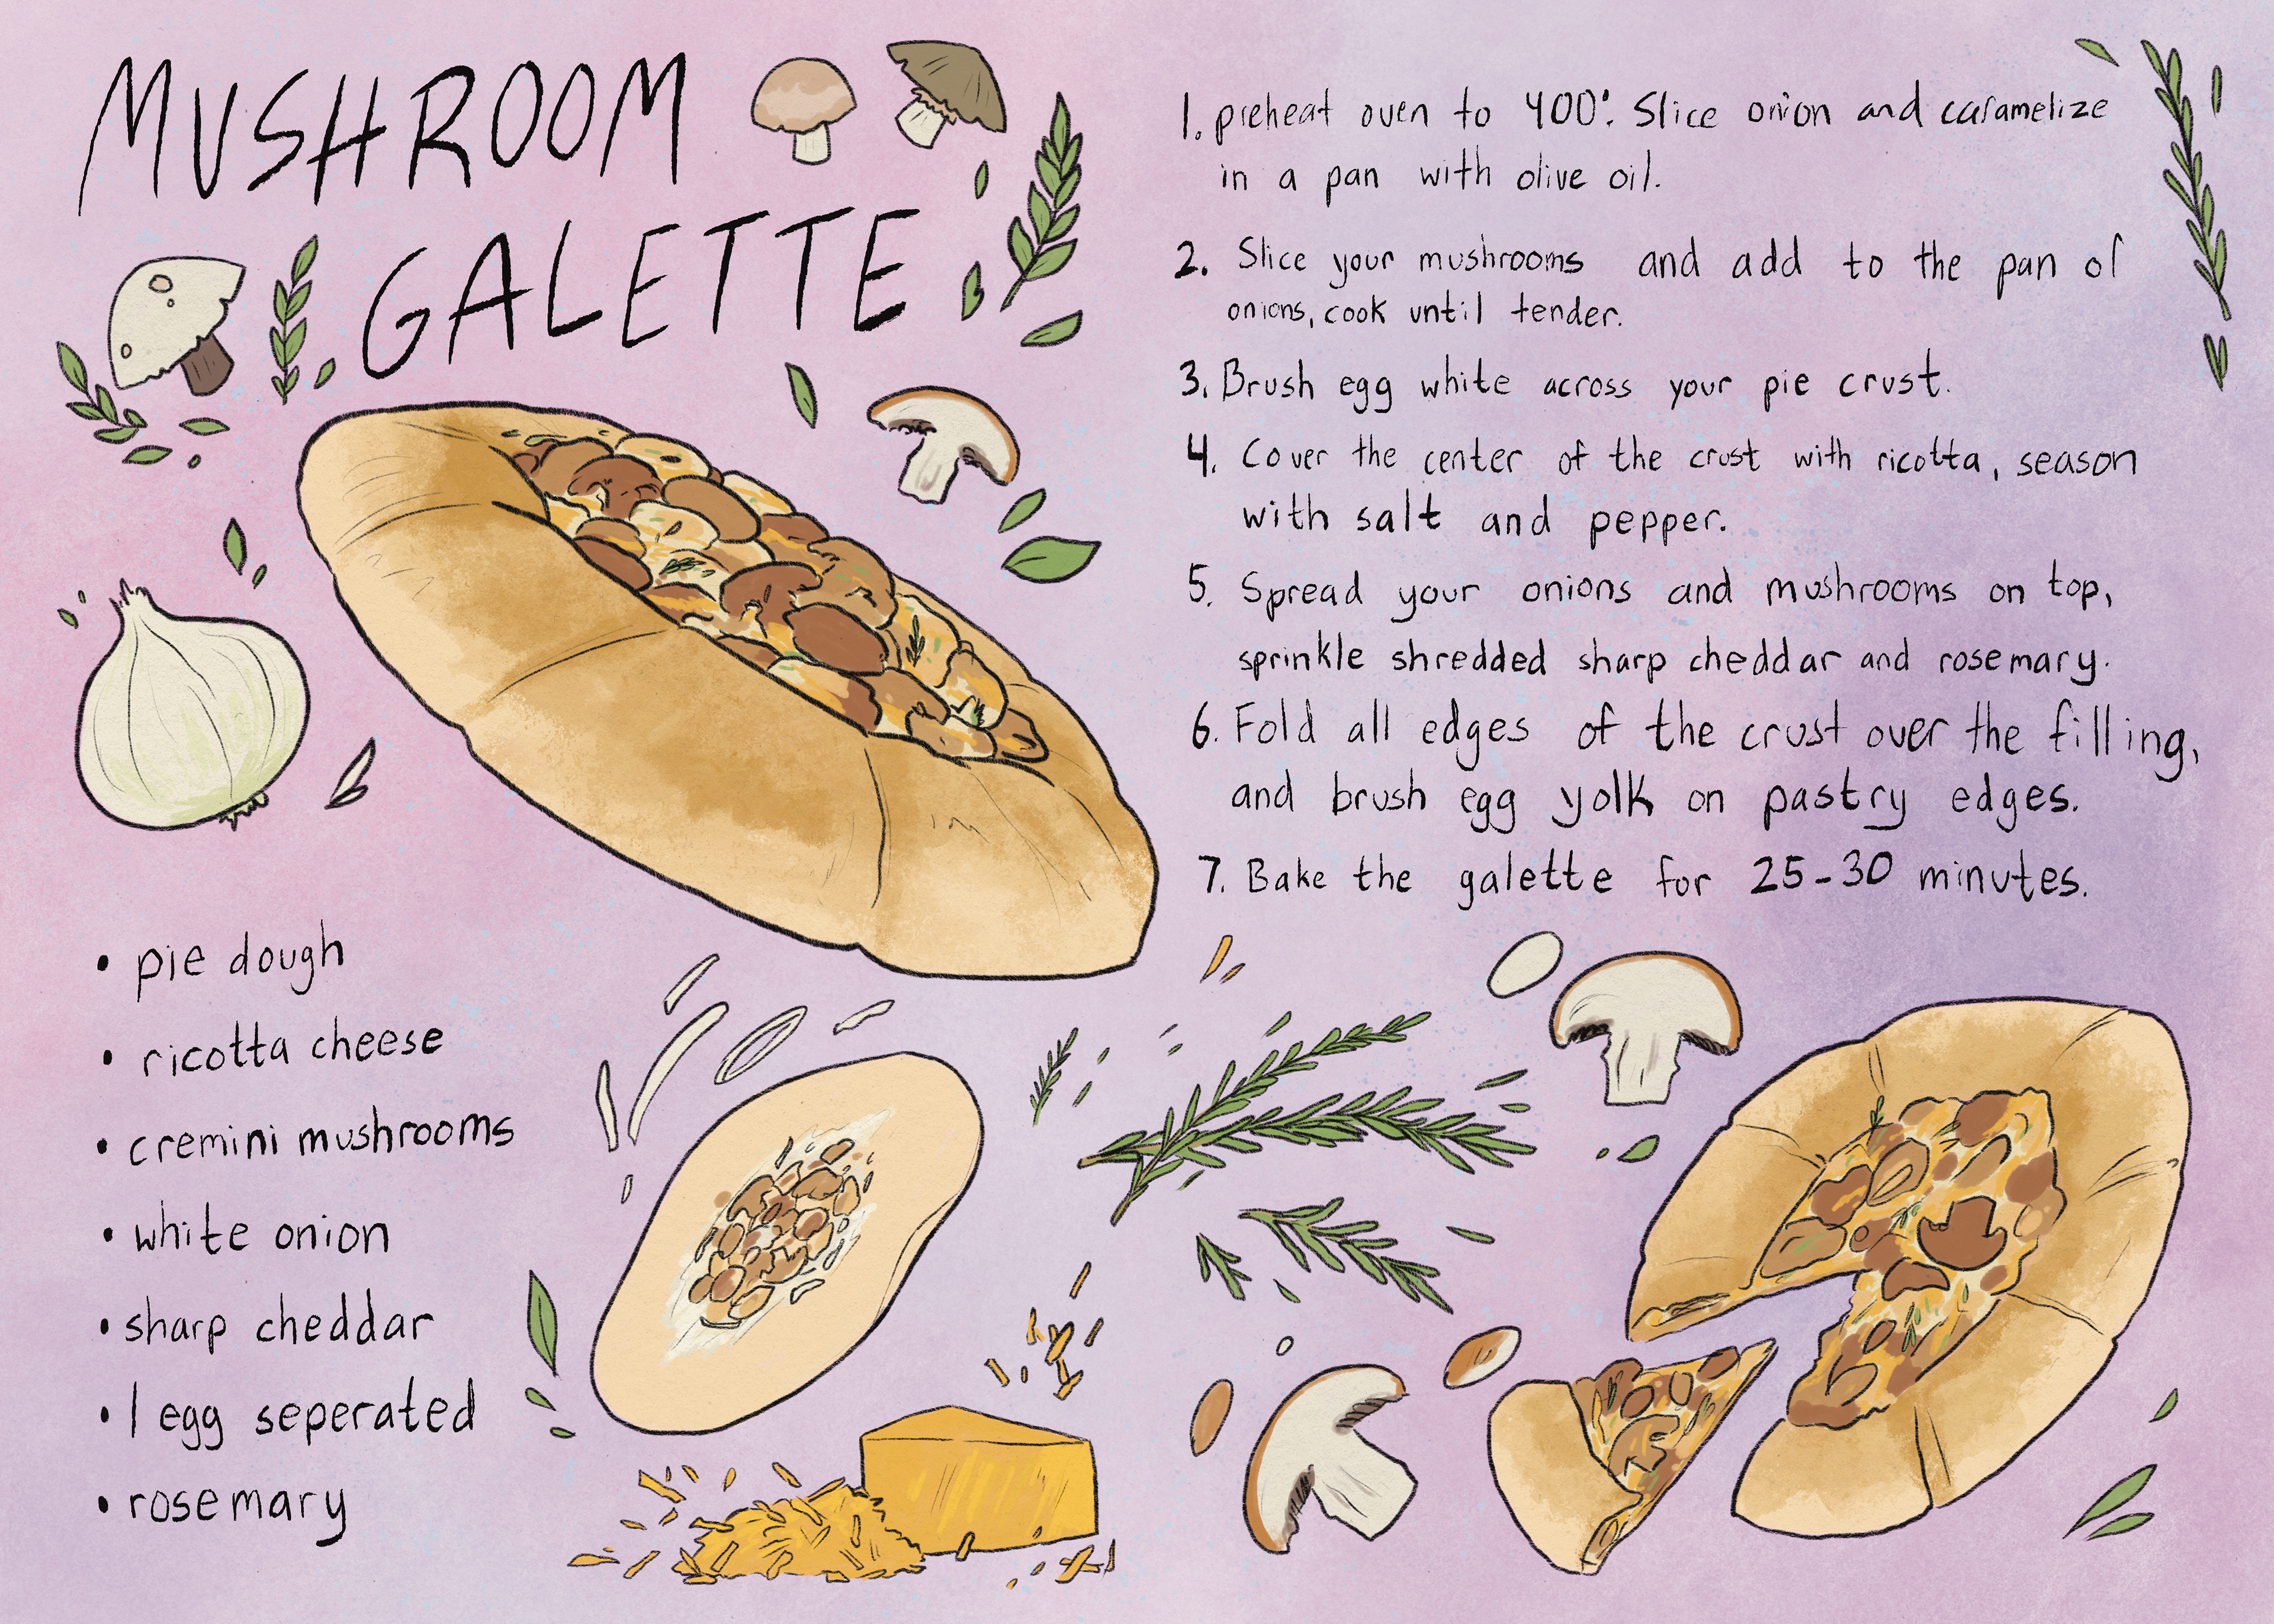 MUSHROOM
GALETTE
• pie dough
• ricotta cheese
• cremini mushrooms
• white onion
• sharp cheddar
• 1 egg seperated
• rosemary
1. preheat oven to 400°. Slice onion and caramelize
in a pan with olive oil.
2. Slice your mushrooms and add to the pan of
onions, cook until tender.
3. Brush egg white across your pie crust.
4. Cover the center of the crust with ricotta, season
with salt and pepper.
5. Spread your onions and mushrooms on top,
sprinkle shredded sharp cheddar and rosemary.
6. Fold all edges of the crust over the filling,
and brush egg yolk on pastry edges.
7. Bake the galette for 25-30 minutes.